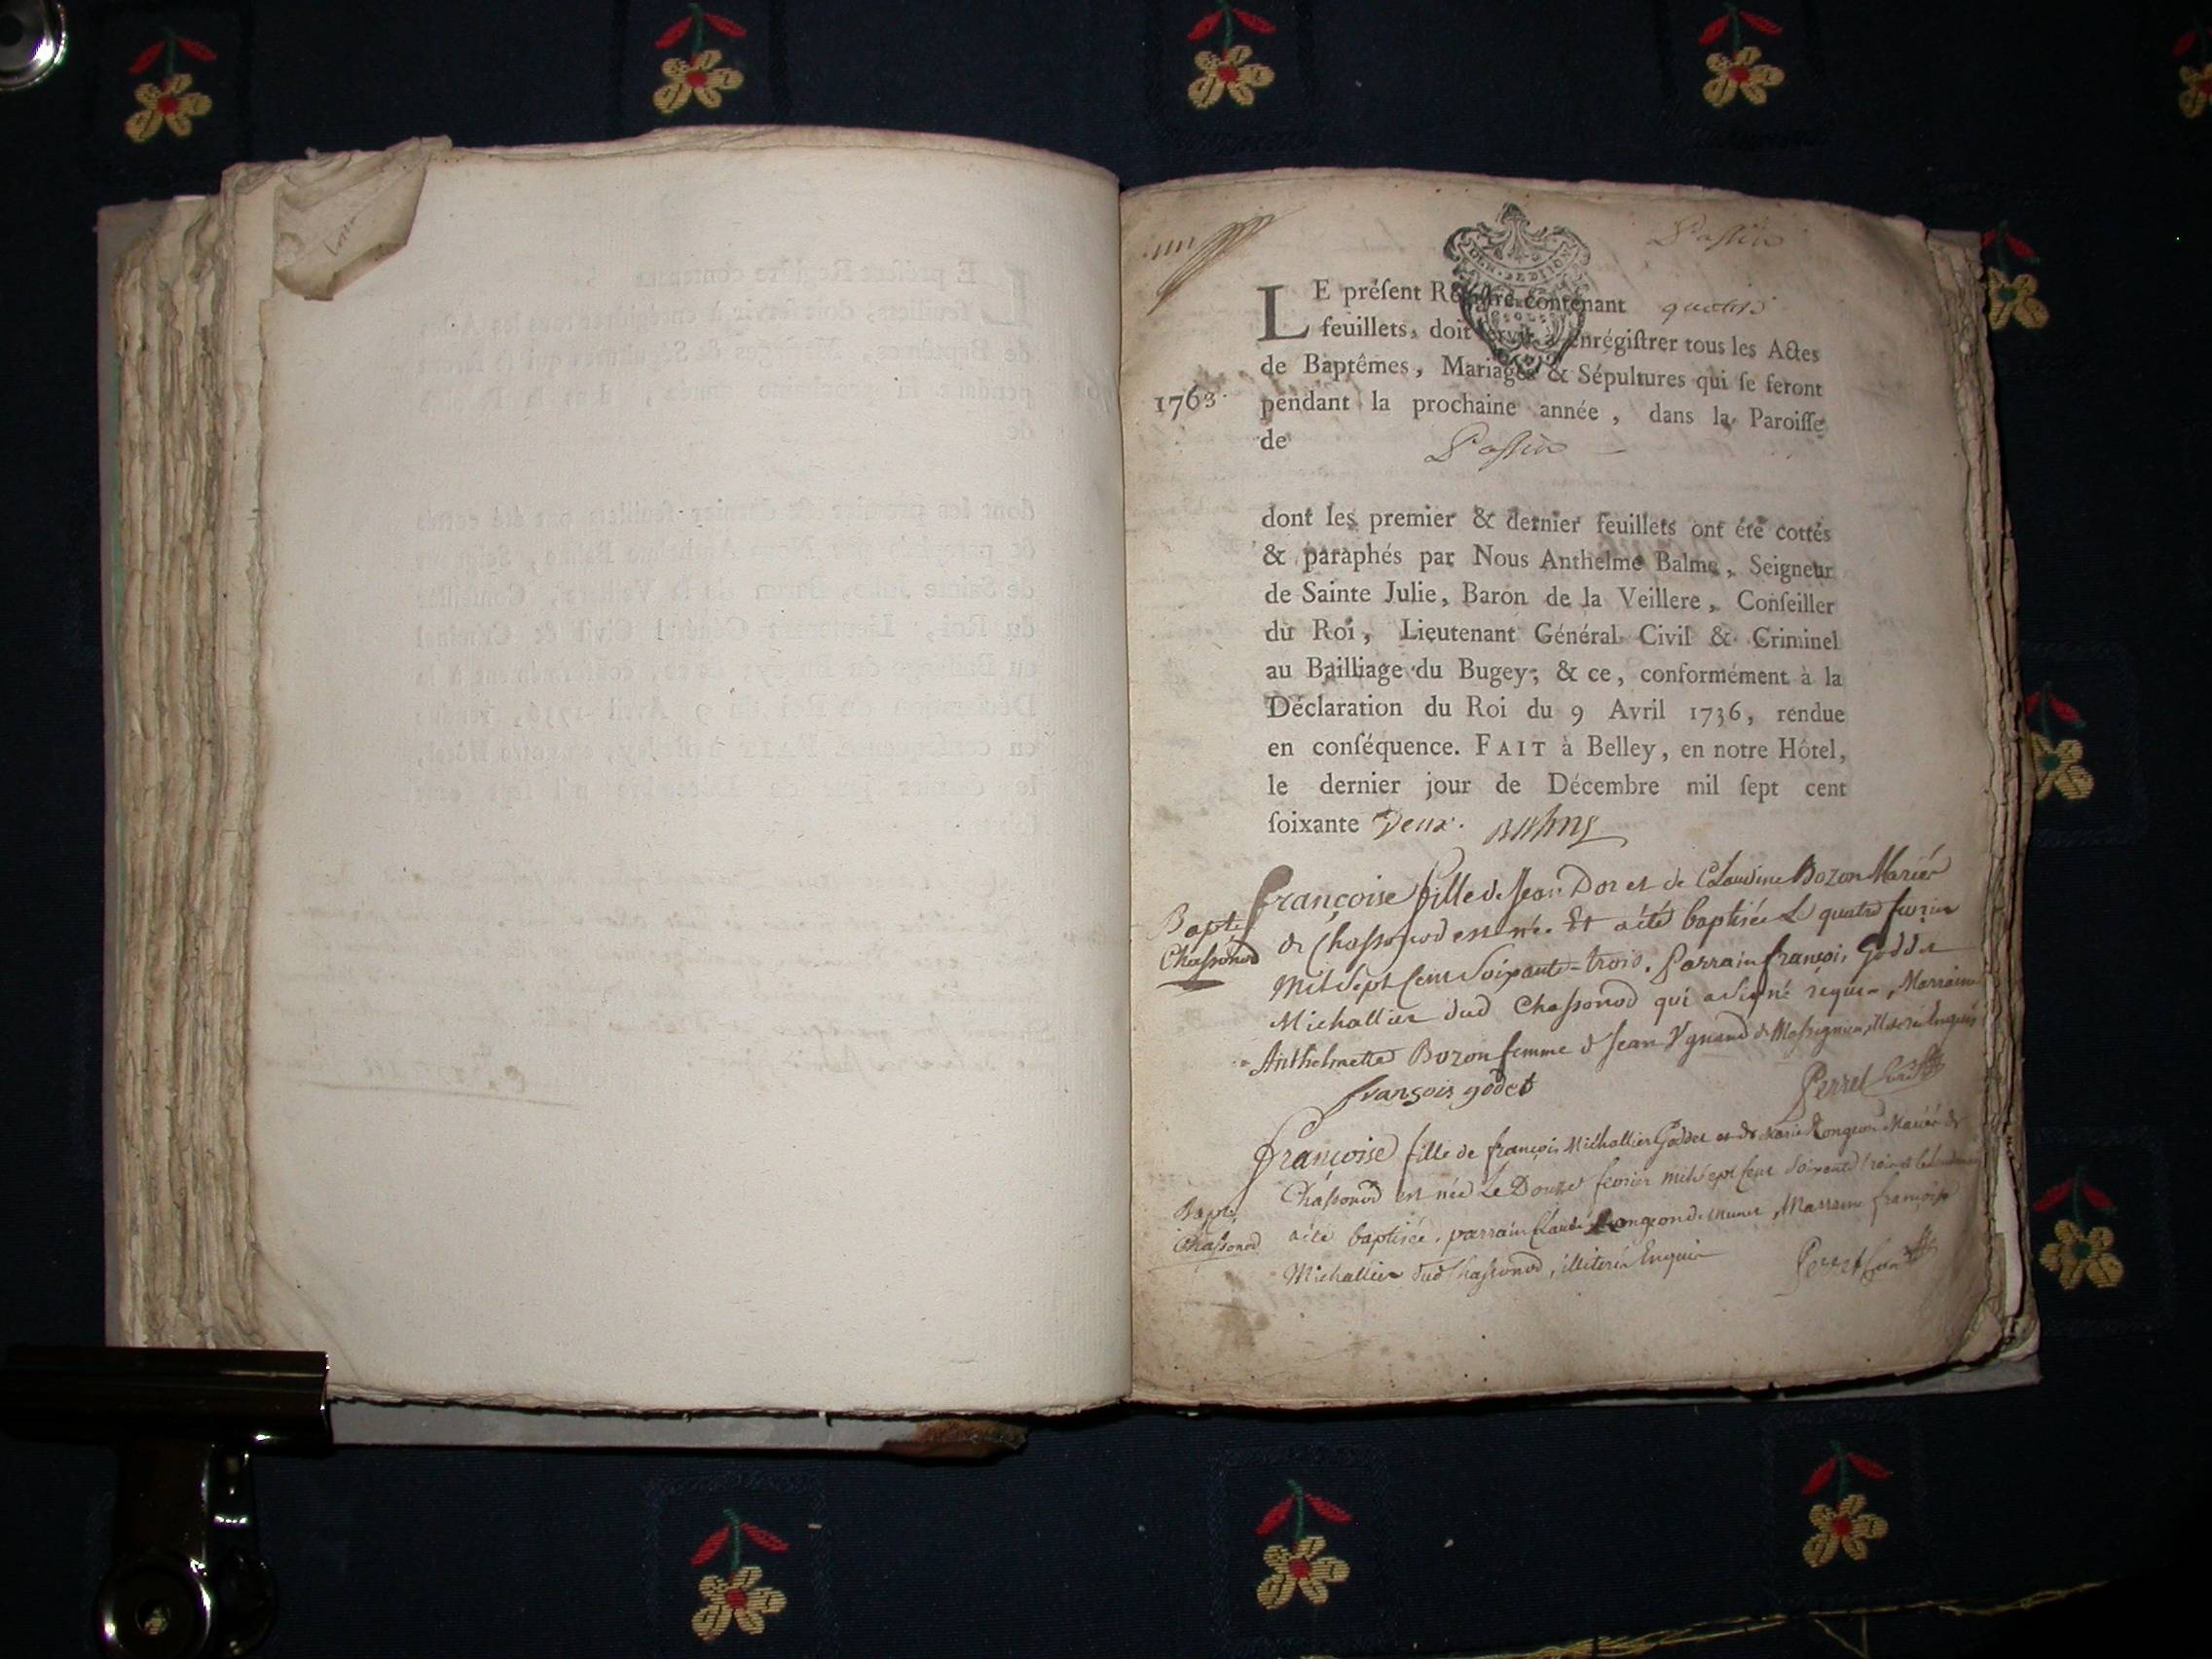 Passin
LE préſent Regiſtre contenant quatre
feuillets, doit ſervir à enrégiſtrer tous les Actes
de Baptêmes, Mariages & Sépultures qui ſe feront
1763. pendant la prochaine année, dans la Paroiſſe
de Passin
dont les premier & dernier feuillets ont été cottés
& paraphés par Nous Anthelme Balme, Seigneur
de Sainte Julie, Baron de la Veillere, Conſeiller
du Roi, Lieutenant Général Civil & Criminel
au Bailliage du Bugey; & ce, conformément à la
Déclaration du Roi du 9 Avril 1736, rendue
en conſéquence. FAIT à Belley, en notre Hôtel,
le dernier jour de Décembre mil ſept cent
ſoixante Deux. Balme
Bapt.
Chassonod
françoise fille de Jean Dor et de Claudine Bozon Mariés
de Chassonod est née et a été baptisée Le quatre fevrier
Mil Sept Cent Soixante-trois. Parrain françois Goddet
Michallier dud Chassonod qui a signé requis, Marraine
Anthelmette Bozon femme d Jean Vgnand de Massignieu
françois godet
Perret Curé
Bapt.
Chassonod
françoise fille de françois Michallier Goddet et de Marie Rongeon Mariés de
Chassonod est née Le Douze fevrier mil Sept Cent Soixante trois et
a été baptisée, parrain Claude Rongeon de Munet, Marraine françoise
Michallier dud Chassonod, illiterés Enquis
Perret Curé